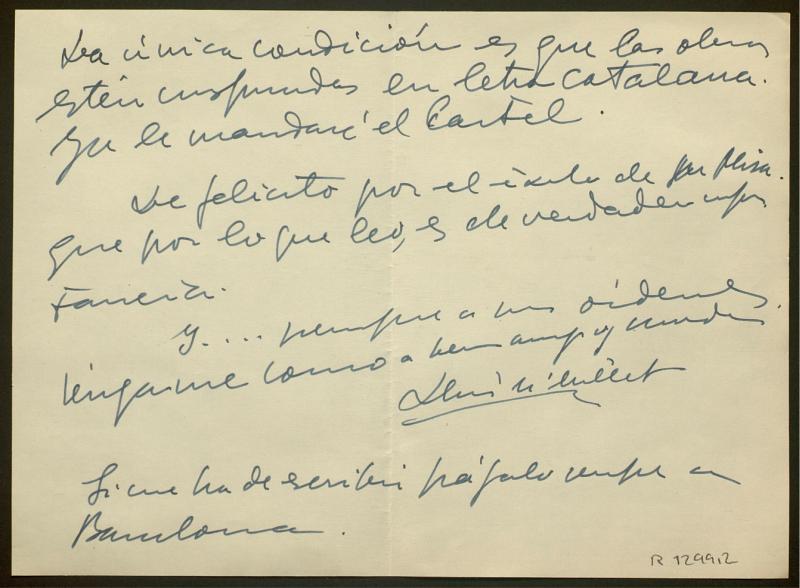 La única condición es que las obras
estén inspiradas en letra catalana.
Ya le mandaré el Cartel.
Le felicito por el éxito de su Misa.
que por lo que leo, es de verdadera impor
tancia.
y.... siempre a sus órdenes,
téngame como a buen amigo y
Lluís Mª Millet
Si me ha de escribir hágalo siempre a
Barcelona.
R 1299,2